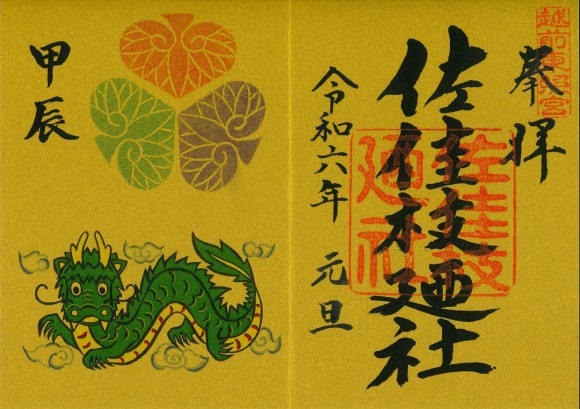 越前東照宮
奉拝
佐佳枝廼社
佐佳枝
廼社
令和六年 元旦
甲辰